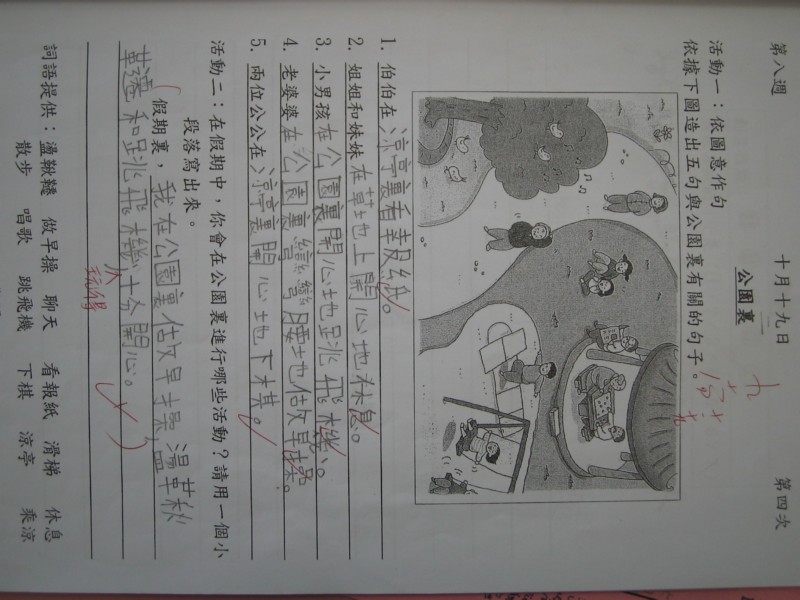 第八週 十月十九日 第四次
公園裏
活動一：依圖意作句
依據下圖造出五句與公園裏有關的句子。
1. 伯伯在涼亭裏看報紙。
2. 姐姐和妹妹在草地上開心地休息。
3. 小男孩在公園裏開心地跳飛機。
4. 老婆婆在公園裏彎腰地做早操。
5. 兩位公公在涼亭裏開心地下棋。
活動二：在假期中，你會在公園裏進行哪些活動？請用一個小
段落寫出來。
假期裏，我在公園裏做早操、盪
和跳飛機十分開心。
詞語提供：盪鞦韆 做早操 聊天 看報紙 滑梯 休息
散步 唱歌 跳飛機 下棋 涼亭 乘涼